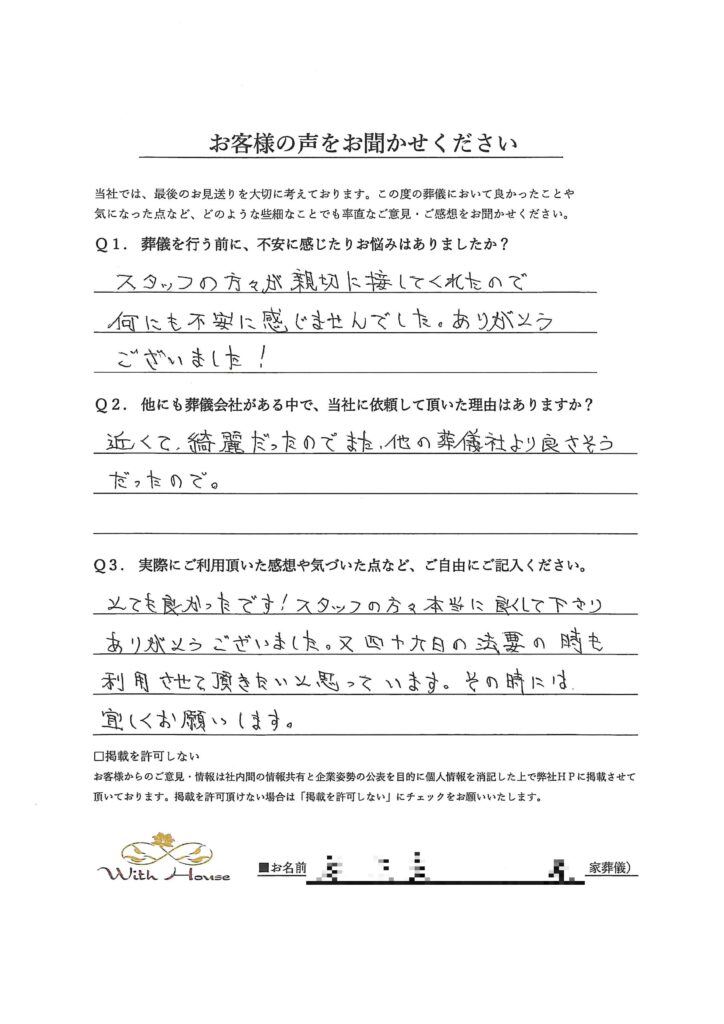 お客様の声をお聞かせください
当社では、最後のお見送りを大切に考えております。この度の葬儀において良かったことや
気になった点など、どのような些細なことでも率直なご意見・ご感想をお聞かせください。
Q1. 葬儀を行う前に、不安に感じたりお悩みはありましたか？
スタッフの方々が親切に接してくれたので
何にも不安に感じませんでした。ありがとう
ございました！
Q2. 他にも葬儀会社がある中で、当社に依頼して頂いた理由はありますか？
近くて、綺麗だったのでまた、他の葬儀社より良さそう
だったので。
Q3. 実際にご利用頂いた感想や気づいた点など、ご自由にご記入ください。
とても良かったです！スタッフの方々本当に良くして下さり
ありがとうございました。又四十六日の法要の時も
利用させて頂きたいと思っています。その時には
宜しくお願いします。
□掲載を許可しない
お客様からのご意見・情報は社内間の情報共有と企業姿勢の公表を目的に個人情報を消記した上で弊社HPに掲載させて
頂いております。掲載を許可頂けない場合は「掲載を許可しない」にチェックをお願いいたします。
With House
■お名前 家葬儀）